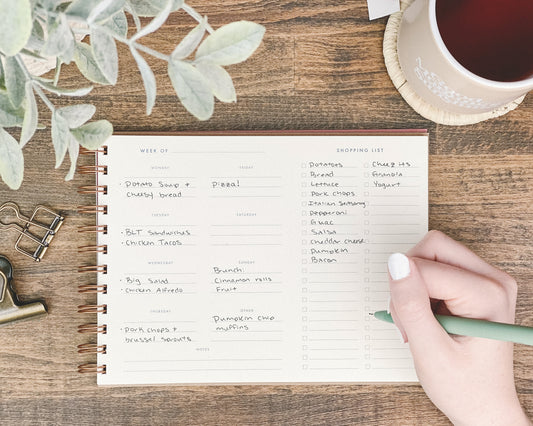 WEEK OF
SHOPPING LIST
MONDAY
Potato Soup +
cheesy bread
FRIDAY
Pizza!
TUESDAY
BLT Sandwiches
Chicken Tacos
SATURDAY
WEDNESDAY
Big Salad
Chicken Alfredo
SUNDAY
Brunch:
Cinnamon rolls
Fruit
THURSDAY
Pork Chops +
brussel sprouts
OTHER
Pumpkin Chip
muffins
NOTES
Potatoes
Bread
Lettuce
Pork chops
Italian Sausage
Pepperoni
Guac
Salsa
cheddar cheese
Pumpkin
Bacon
Cheez Its
Granola
Yogurt